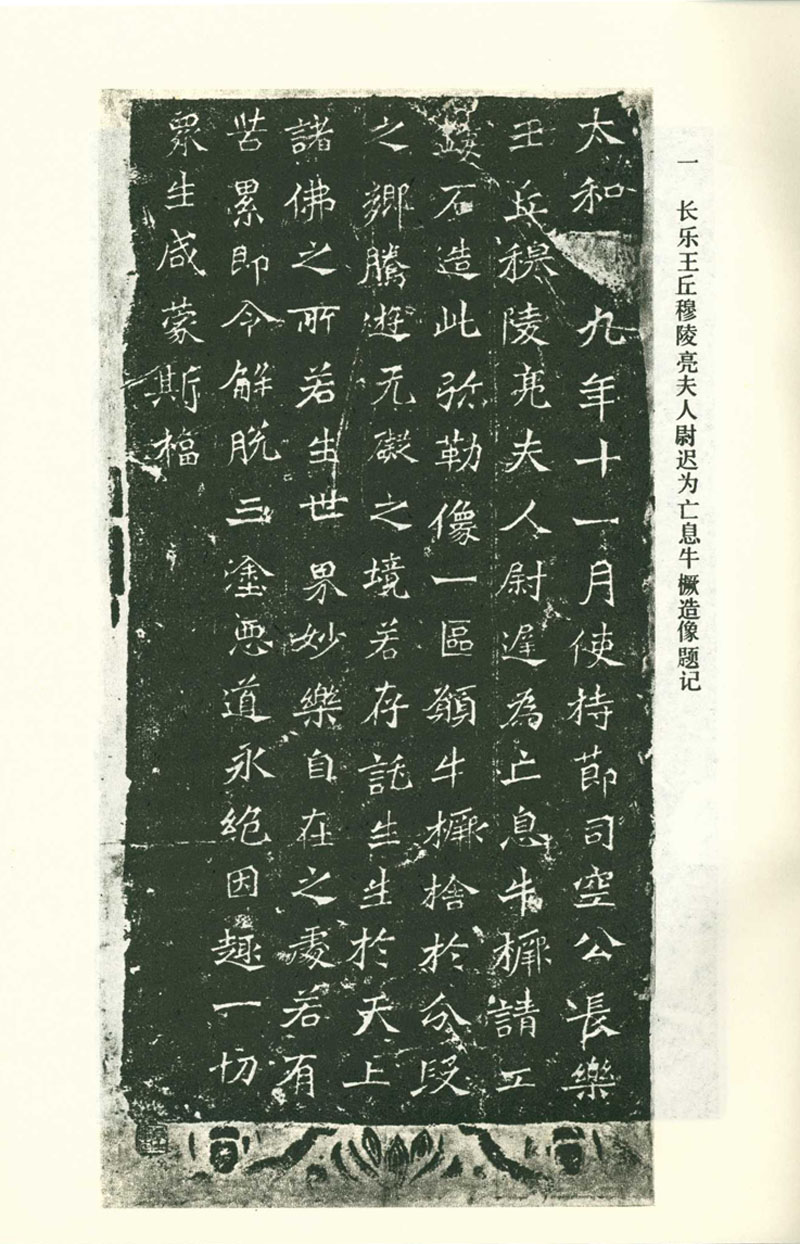 一 长乐王丘穆陵亮夫人尉迟为亡息牛橛造像题记
太和 九年十一月使持節司空公長樂
王丘穆陵亮夫人尉遲為亡息牛橛請工
鏤石造此弥勒像一區願牛橛捨於分段
之鄉騰遊无礙之境若存託生生於天上
諸佛之所若生世界妙樂自在之處若有
苦累即令解脫三塗惡道永絕因趣一切
眾生咸蒙斯福